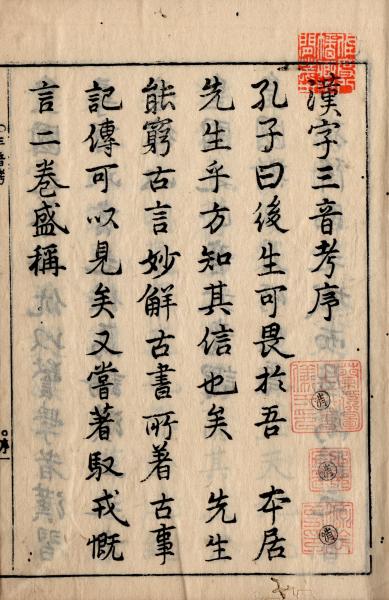 漢字三音考序
孔子曰後生可畏於吾　本居
先生乎方知其信也矣　先生
能窮古言妙解古書所著古事
記傳可以見矣又嘗著馭戎慨
言二卷盛稱
三音考
〇序一